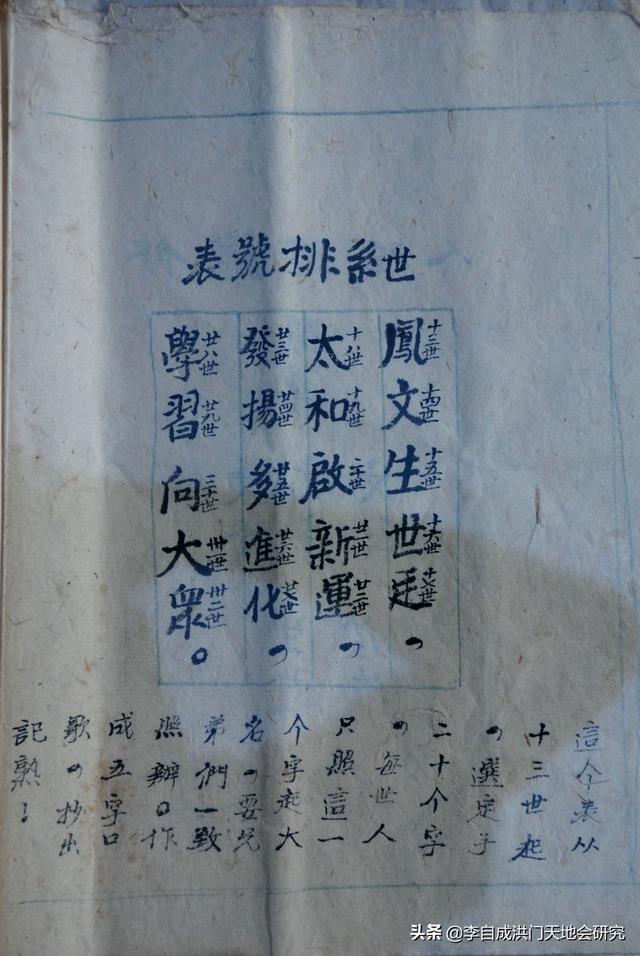 世系排號表
鳳十三世文十四世生十五世世十六世廷十七世，
太十八世和十九世啟二十世新廿一世運廿二世，
發廿三世揚廿四世多廿五世進廿六世化廿七世，
學廿八世習廿九世向三十世大卅一世眾卅二世。
這个表从
十三世起
，選定了
二十个字
，每世人
只照這一
个字起大
名，要兄
弟們一致
照辦。作
成五字口
歌，抄出
記熟！
头条 @李自成洪门天地会研究